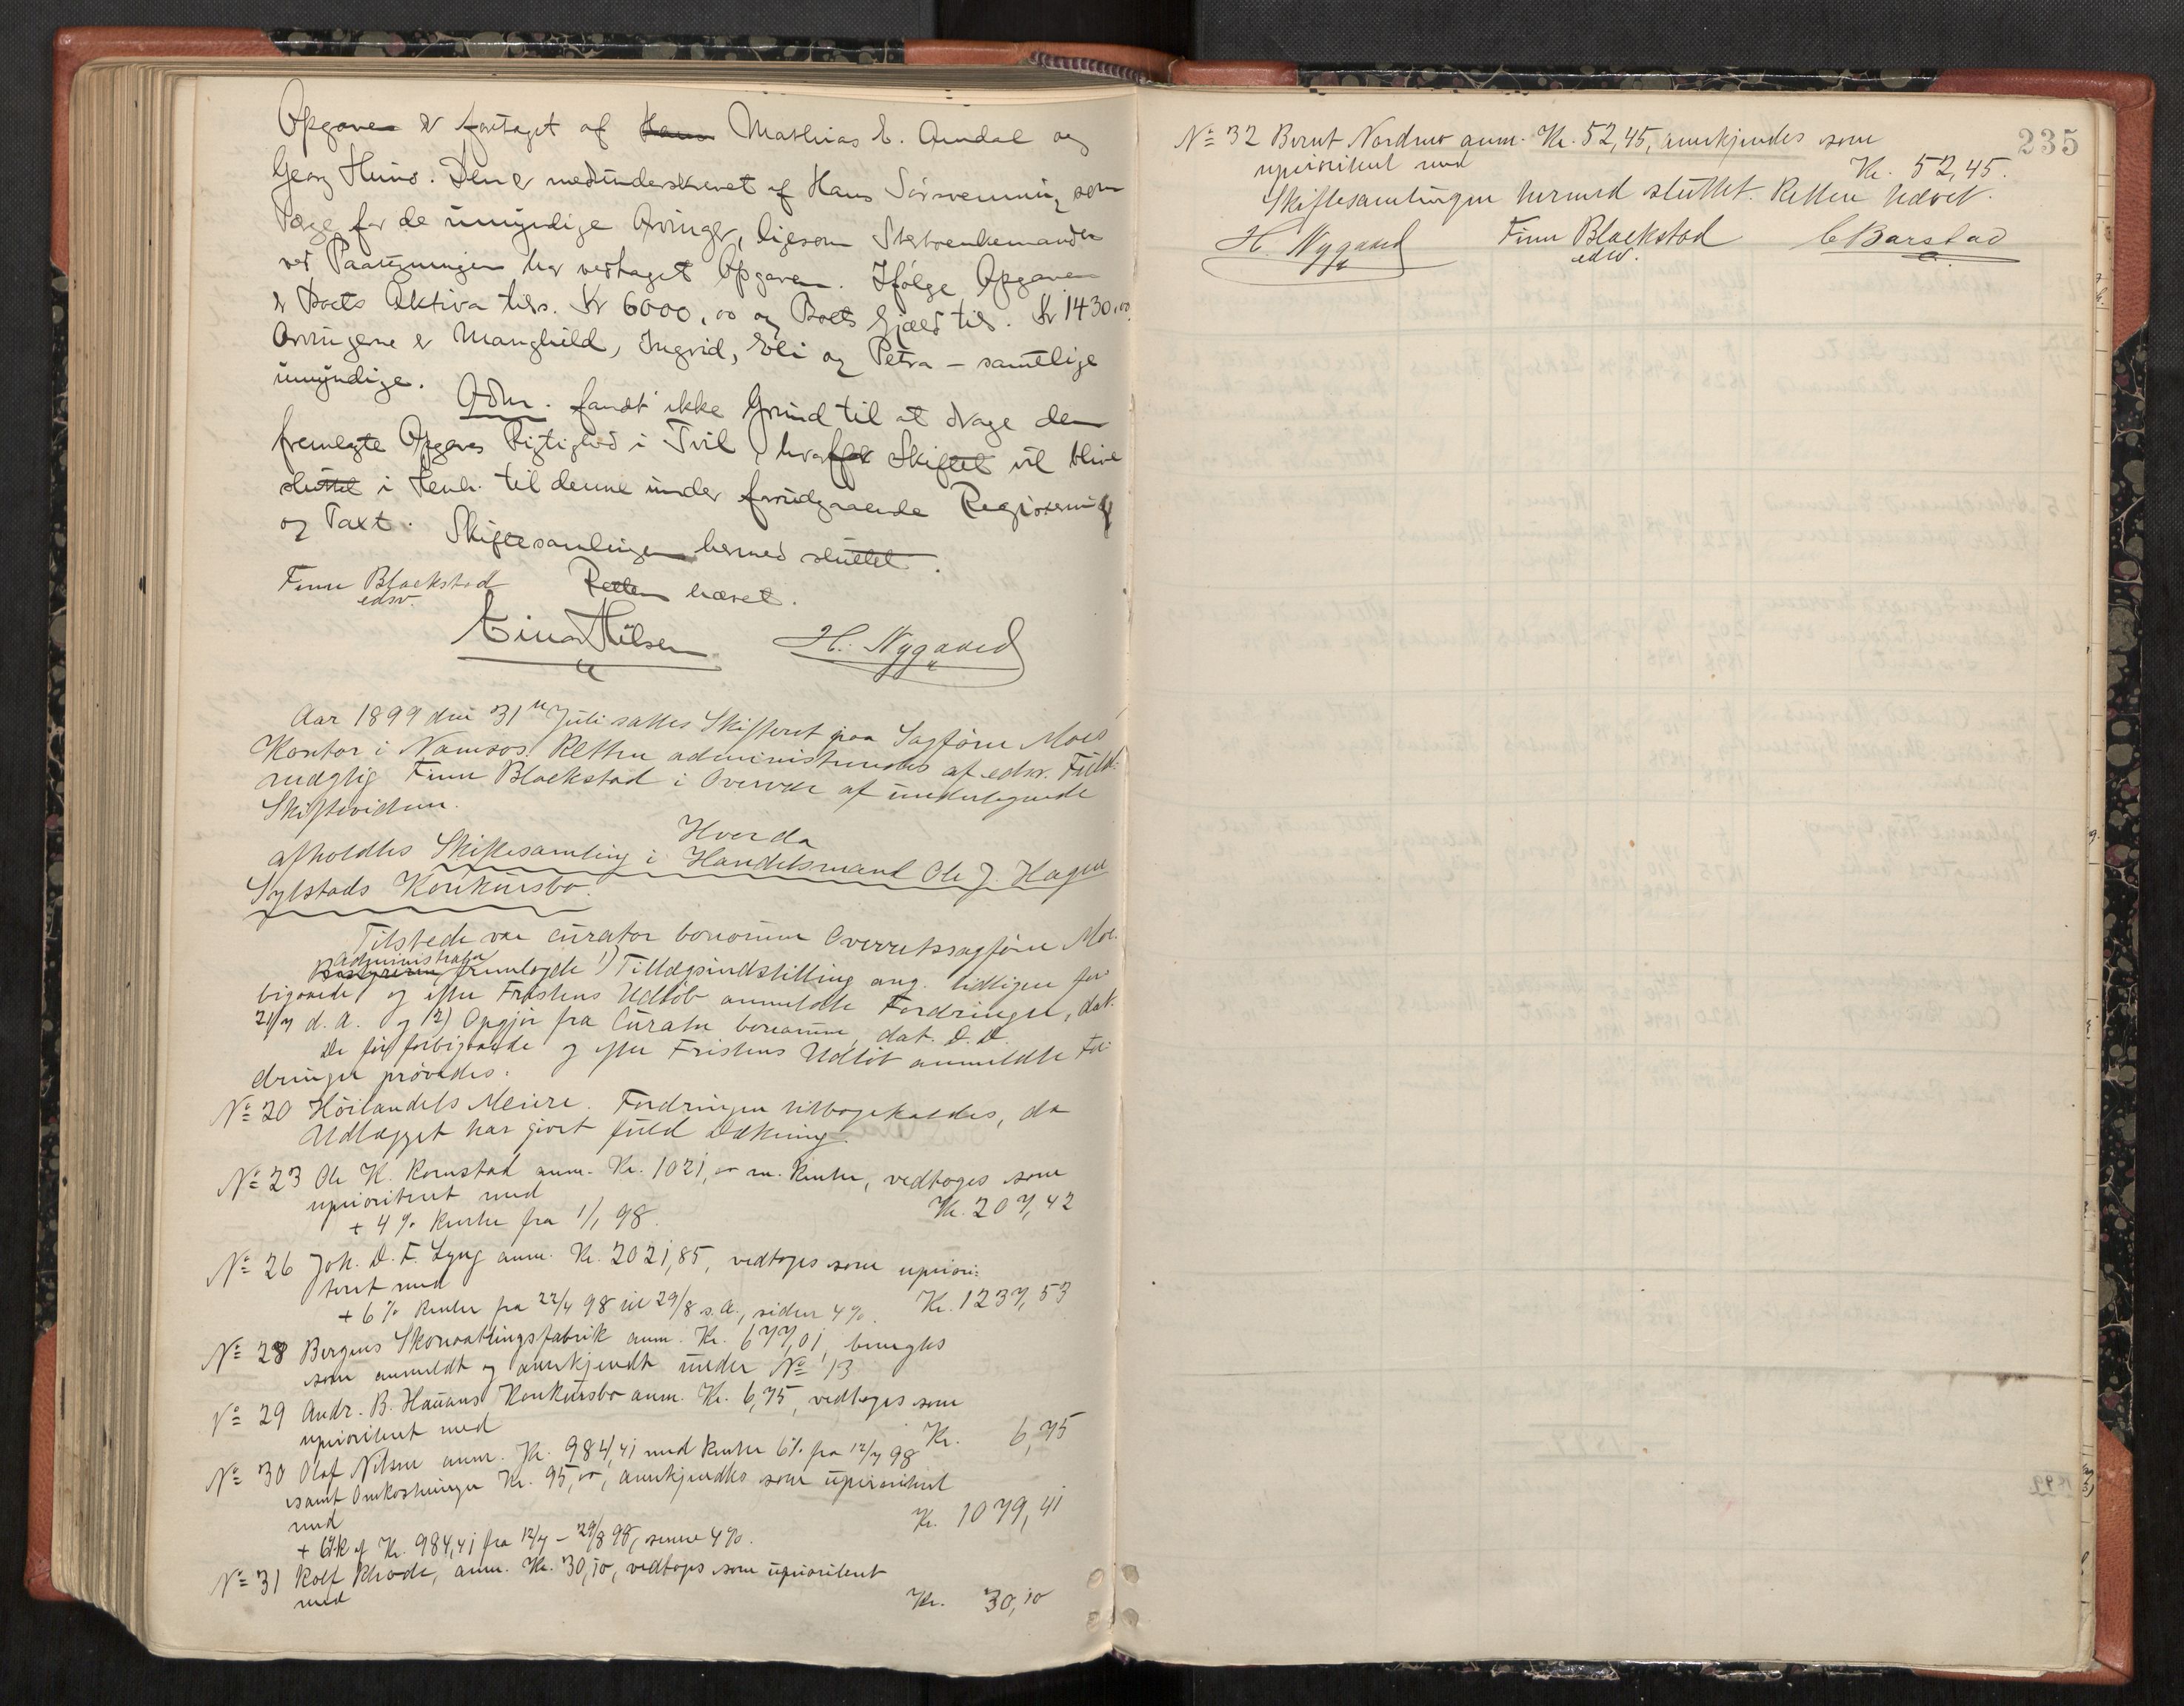 Opgaven er foretaget af Hans Mathias E. Amdal og
Georg Hüno. Den er medunderskrevet af Hans Sörsvenning som
Tage for de umyndige Arvinger, ligesom Sterboenkemanden
ved Paategningen har vedtaget Opgaven. Ifölge Opgaven
er Boets Aktiva tils. Kr 6000,00 og Boets Gjæld tils. Kr 1430,00.
Arvingene er Manghild, Ingrid, Eli og Petra - samtlige
umyndige. Adm. fandt ikke Grund til at drage den
fremlagte Opgaves Rigtighed i Tvil, hvorfor Skiftet vil blive
sluttet i Henh. til denne under forudgaaende Registrering
og Taxt. Skiftesamlingen hermed sluttet.
Retten hævet.
Finn Blackstad
edsv.
Einar Nilsen H. Nygaard
Aar 1899 den 31te Juli sattes Skifteret paa Sagförer Moes
Kontor i Namsos. Retten administreredes af edsv. Fuld-
mægtig Finn Blackstad i Overvær af undertegnede
Skiftevidner.
Hvorda
afholdtes Skiftesamling i Handelsmand Ole J. Hagen
Sylstads Konkursbo.
Tilstede var curator bonorum Overretssagförer Moe.
Administrator
Bestyreren fremlagde 1) Tillægsindstilling ang. tidligere for-
bigaaede og efter Fristens Udlöb anmeldte Fordringer, dat.
21/7 d. A. og 2) Opgjör fra Curator bonorum, dat. D. D.
De för forbigaaede og efter Fristens Udlöb anmeldte For-
dringer prövedes.
No 20 Höilandets Meieri. Fordringen tilbagekaldes, da
Udlægget har givet fuld Dækning.
No 23 Ole K. Romstad anm. Kr. 1021,00 m. Renter, vedtoges som
uprioriteret med Kr. 207,42
+ 4% Renter fra 1/1 98.
No 26 Joh. D. F. Lyng anm. Kr. 2021,85, vedtoges som upriori-
teret med Kr. 1237,53
+ 6% Renter fra 22/4 98 til 29/8 s. A., siden 4%.
No 28 Bergens Skomatlingsfabrik anm. Kr. 677,01, benegtes
som anmeldt og anerkjendt under No 13
No 29 Andr. B. Hauans Konkursbo anm. Kr. 6,75, vedtoges som
uprioriteret med Kr. 6,75
No 30 Olaf Nilsen anm. Kr. 984,41 med Renter 6% fra 12/7 98
samt Omkostninger Kr. 95,00, anerkjendtes som uprioriteret
med Kr. 1079,41
+ 6% R af Kr. 984,41 fra 12/7 - 29/8 98, senere 4%.
No 31 Rolf Rhode, anm. Kr. 30,10, vedtoges som uprioriteret
med Kr. 30,10
235
No 32 Bernt Nordmo anm. Kr. 52,45, anerkjendes som
uprioriteret med Kr. 52,45.
Skiftesamlingen hermed sluttet. Retten hævet.
H. Nygaard Finn Blackstad C Barstad
edsv.